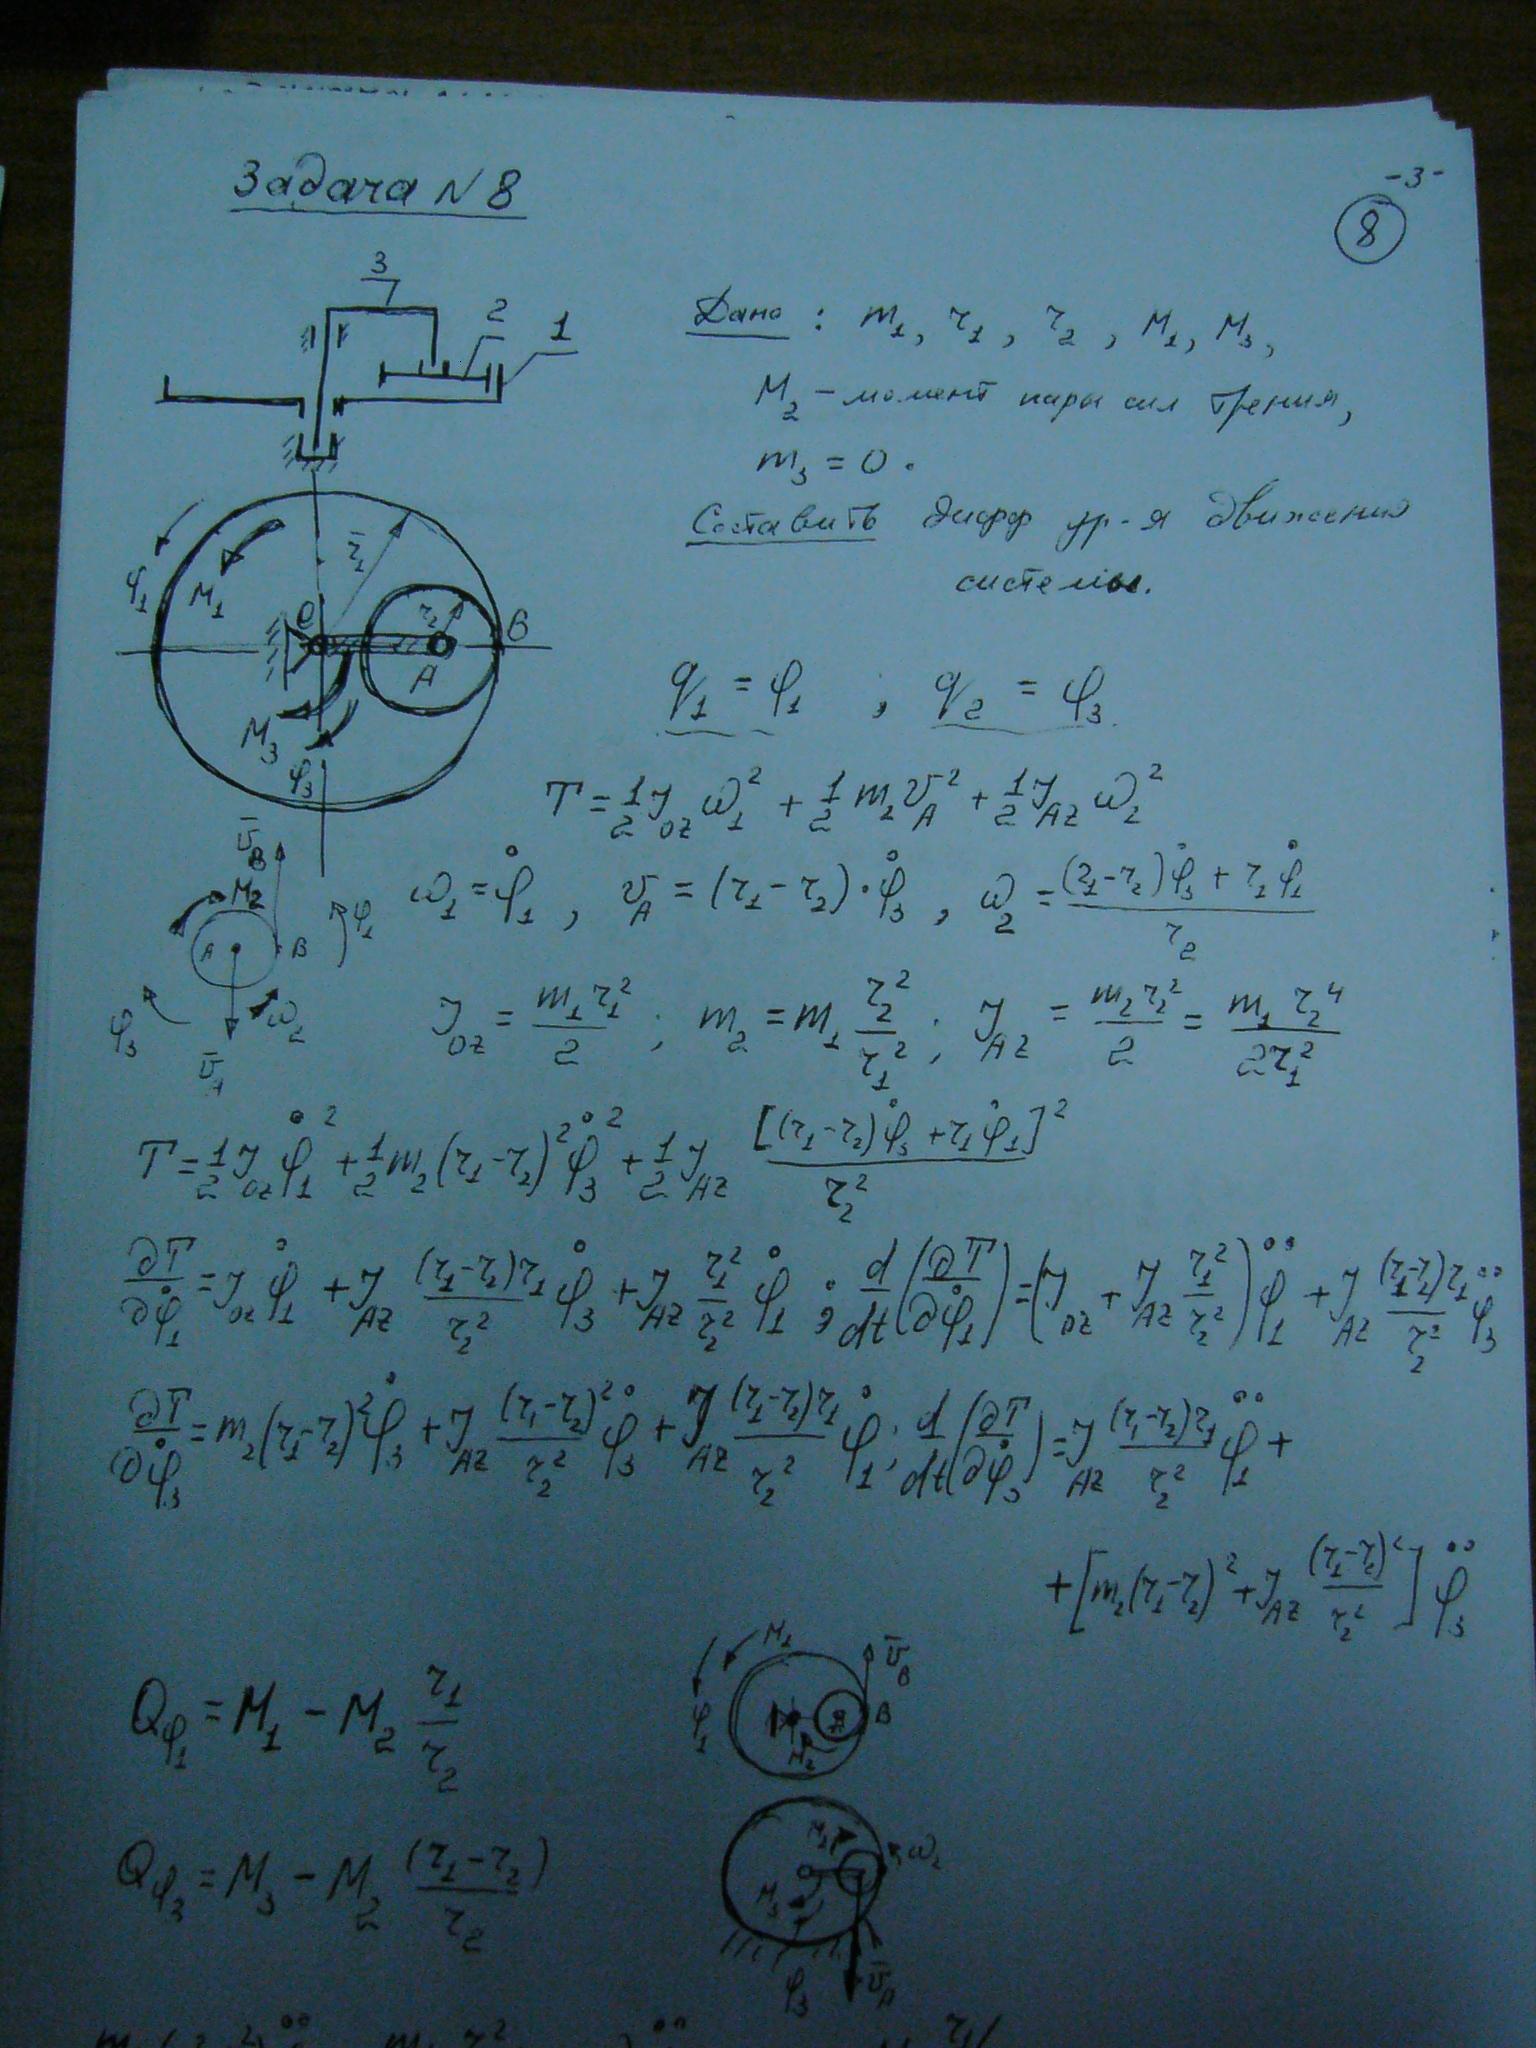 Задача N 8
-3-
8
3
2
1
Дано : m₁, r₁, r₂, M₁, M₃,
M₂ – момент пары сил трения,
m₃ = 0.
Составить дифф ур-я движения
системы.
φ₁
M₁
r₁
r₂
O
A
B
M₃
φ₃
q₁ = φ₁ ; q₂ = φ₃
T = 1/2 J_OZ ω₁² + 1/2 m₂ v_A² + 1/2 J_AZ ω₂²
v̄_B
M₂
A
B
φ₁
φ₃
ω₂
ω₁ = φ̇₁, v_A = (r₁ - r₂)·φ̇₃, ω₂ = ((r₁-r₂)φ̇₃ + r₁φ̇₁)/r₂
J_OZ = m₁r₁²/2 ; m₂ = m₁ r₂²/r₁² ; J_AZ = m₂r₂²/2 = m₁r₂⁴/2r₁²
T = 1/2 J_OZ φ̇₁² + 1/2 m₂(r₁-r₂)²φ̇₃² + 1/2 J_AZ [(r₁-r₂)φ̇₃ + r₁φ̇₁]²/r₂²
∂T/∂φ̇₁ = J_OZ φ̇₁ + J_AZ (r₁-r₂)r₁/r₂² φ̇₃ + J_AZ r₁²/r₂² φ̇₁ ; d/dt(∂T/∂φ̇₁) = (J_OZ + J_AZ r₁²/r₂²)φ̈₁ + J_AZ (r₁-r₂)r₁/r₂² φ̈₃
∂T/∂φ̇₃ = m₂(r₁-r₂)²φ̇₃ + J_AZ (r₁-r₂)²/r₂² φ̇₃ + J_AZ (r₁-r₂)r₁/r₂² φ̇₁ ; d/dt(∂T/∂φ̇₃) = J_AZ (r₁-r₂)r₁/r₂² φ̈₁ +
+ [m₂(r₁-r₂)² + J_AZ (r₁-r₂)²/r₂²] φ̈₃
Q_φ₁ = M₁ - M₂ r₁/r₂
M₁
v̄_B
φ₁
A
B
M₂
Q_φ₃ = M₃ - M₂ (r₁-r₂)/r₂
ω₂
M₃
φ₃
v̄_A